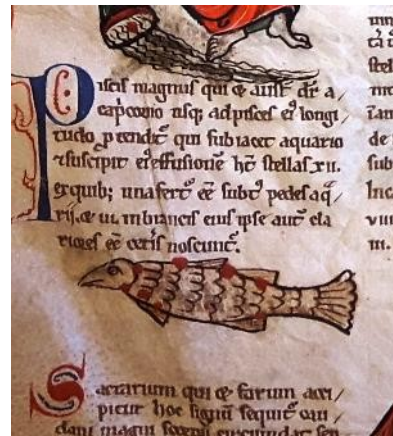 Piscis magnus qui ⁊ austr̄ dr̄ a/
cap̄conio usq; ad pisces ei᷒ longi/
tudo p̄tendit᷑ qui subiacet aquario
⁊ suscipit ei᷒ effusionē hc̄ stellas xii.
ex quib; una fert᷑ ēē subt᷒ pedes aq̄/
rij. ⁊ ut in brancis eius ipse aut̄ cla
riores ēē cet̄is noscunt᷑.
Sacrarium qui ⁊ farum acci/
pitur hoc signū sequit᷑ cau/
dam magni
stell
de
sub